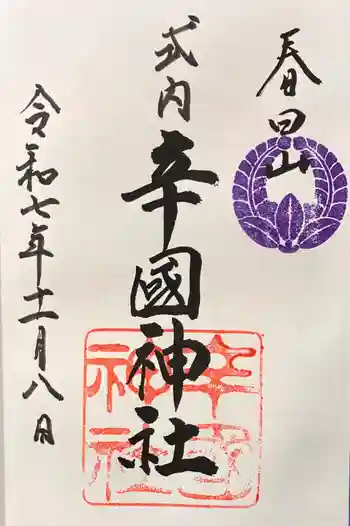 春日山
式内
辛國神社
令和七年十一月八日
辛國神社